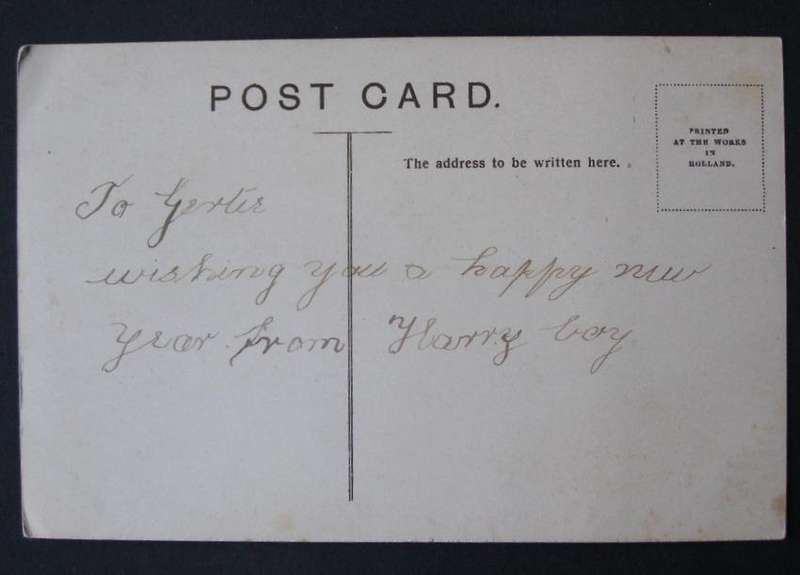 POST CARD.
The address to be written here.
PRINTED
AT THE WORKS
IN
HOLLAND.
To Gertie
wishing you a happy new
Year from Harry boy